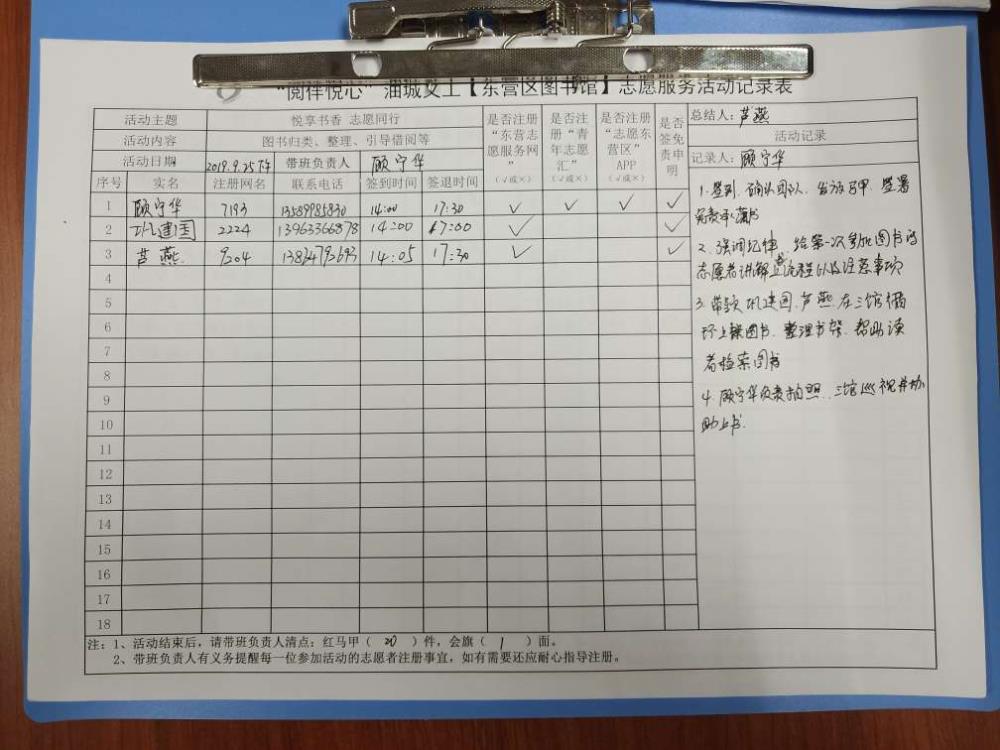 “阅伴悦心”油城义工【东营区图书馆】志愿服务活动记录表
活动主题 悦享书香 志愿同行
活动内容 图书归类、整理、引导借阅等
活动日期 2019.9.25下午 带班负责人 顾宁华
是否注册“东营志愿服务网”(√或×)
是否注册“青年志愿汇”(√或×)
是否注册“志愿东营区”APP(√或×)
是否签免责申明
总结人:芦燕
活动记录
记录人:顾宁华
序号 实名 注册网名 联系电话 签到时间 签退时间
1 顾宁华 7193 13589985830 14:00 17:30 √ √ √ √
2 巩建国 2224 13963366878 14:00 17:00 √ √
3 芦燕 9204 14:05 17:30 √ √
4
5
6
7
8
9
10
11
12
13
14
15
16
17
18
1.签到、确认团队、发放马甲、签署
免责承诺书
2.强调纪律、给第一次参加图书的
志愿者讲解上书流程以及注意事项
3.带领巩建国、芦燕在三馆循
环上架图书、整理书架、帮助读
者检索图书
4.顾宁华负责拍照、三馆巡视并协
助上书.
注:1、活动结束后,请带班负责人清点:红马甲( 20 )件,会旗( 1 )面。
2、带班负责人有义务提醒每一位参加活动的志愿者注册事宜,如有需要还应耐心指导注册。